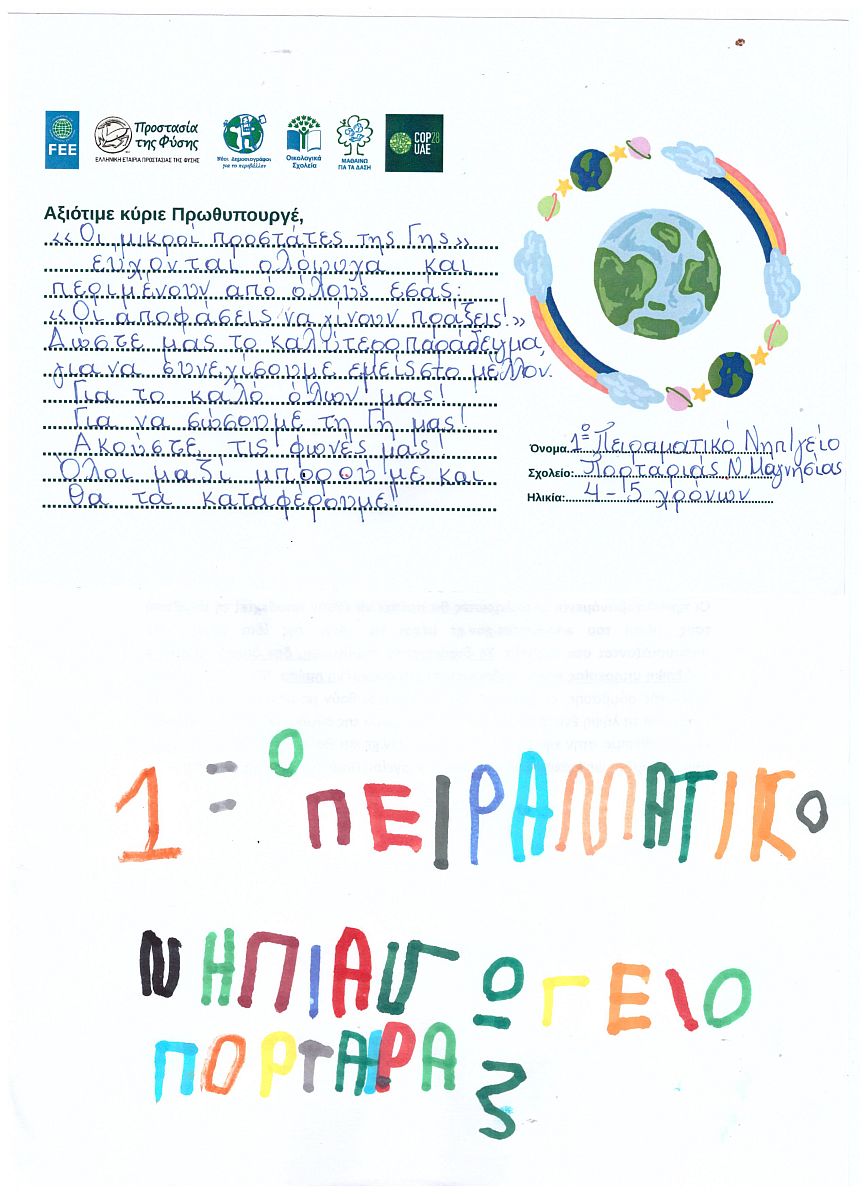 FEE
Προστασία
της Φύσης
ΕΛΛΗΝΙΚΗ ΕΤΑΙΡΙΑ ΠΡΟΣΤΑΣΙΑΣ ΤΗΣ ΦΥΣΗΣ
Νέοι Δημοσιογράφοι
για το περιβάλλον
Οικολογικά
Σχολεία
ΜΑΘΑΙΝΩ
ΓΙΑ ΤΑ ΔΑΣΗ
COP28
UAE
Αξιότιμε κύριε Πρωθυπουργέ,
«Οι μικροί προστάτες της Γης»
εύχονται ολόψυχα και
περιμένουν από όλους εσάς:
«Οι αποφάσεις να γίνουν πράξεις!»
Δώστε μας το καλύτερο παράδειγμα,
για να συνεχίσουμε εμείς στο μέλλον.
Για το καλό όλων μας!
Για να σώσουμε τη Γη μας!
Ακούστε τις φωνές μας!
Όλοι μαζί μπορούμε και
θα τα καταφέρουμε!
Όνομα 1ο Πειραματικό Νηπ/γείο
Σχολείο: Πορταριάς Ν Μαγνησίας
Ηλικία: 4-5 χρόνων
1ο ΠΕΙΡΑΜΑΤΙΚΟ
ΝΗΠΙΑΓΩΓΕΙΟ